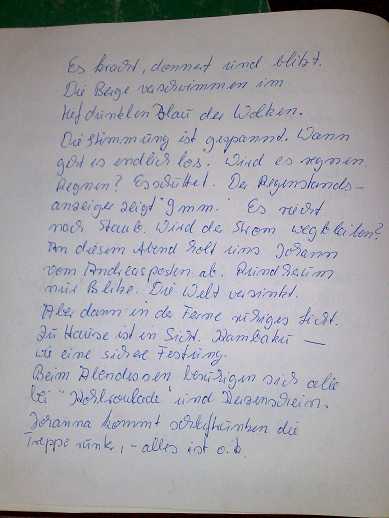 Es kracht, donnert und blitzt.
Die Berge verschwimmen im
tiefdunklen Blau der Wolken.
Die Stimmung ist gespannt. Wann
geht es endlich los? Wird es regnen
Regnen? Es schüttet. Der Regenstands-
anzeiger zeigt 9mm." Es riecht
nach Staub. Wird der Strom wegbleiben?
An diesem Abend holt uns Johann
vom Andreasposten ab. Rundherum
nur Blitze. Die Welt versinkt.
Aber dann in der Ferne ruhiges Licht.
Zu Hause ist in Sicht. Hambaku —
wie eine sichere Festung.
Beim Abendessen beruhigen sich alle
bei "Kohlroulade" und Kerzenschein.
Johanna kommt schlaftrunken die
Treppe runter, - alles ist o.k.